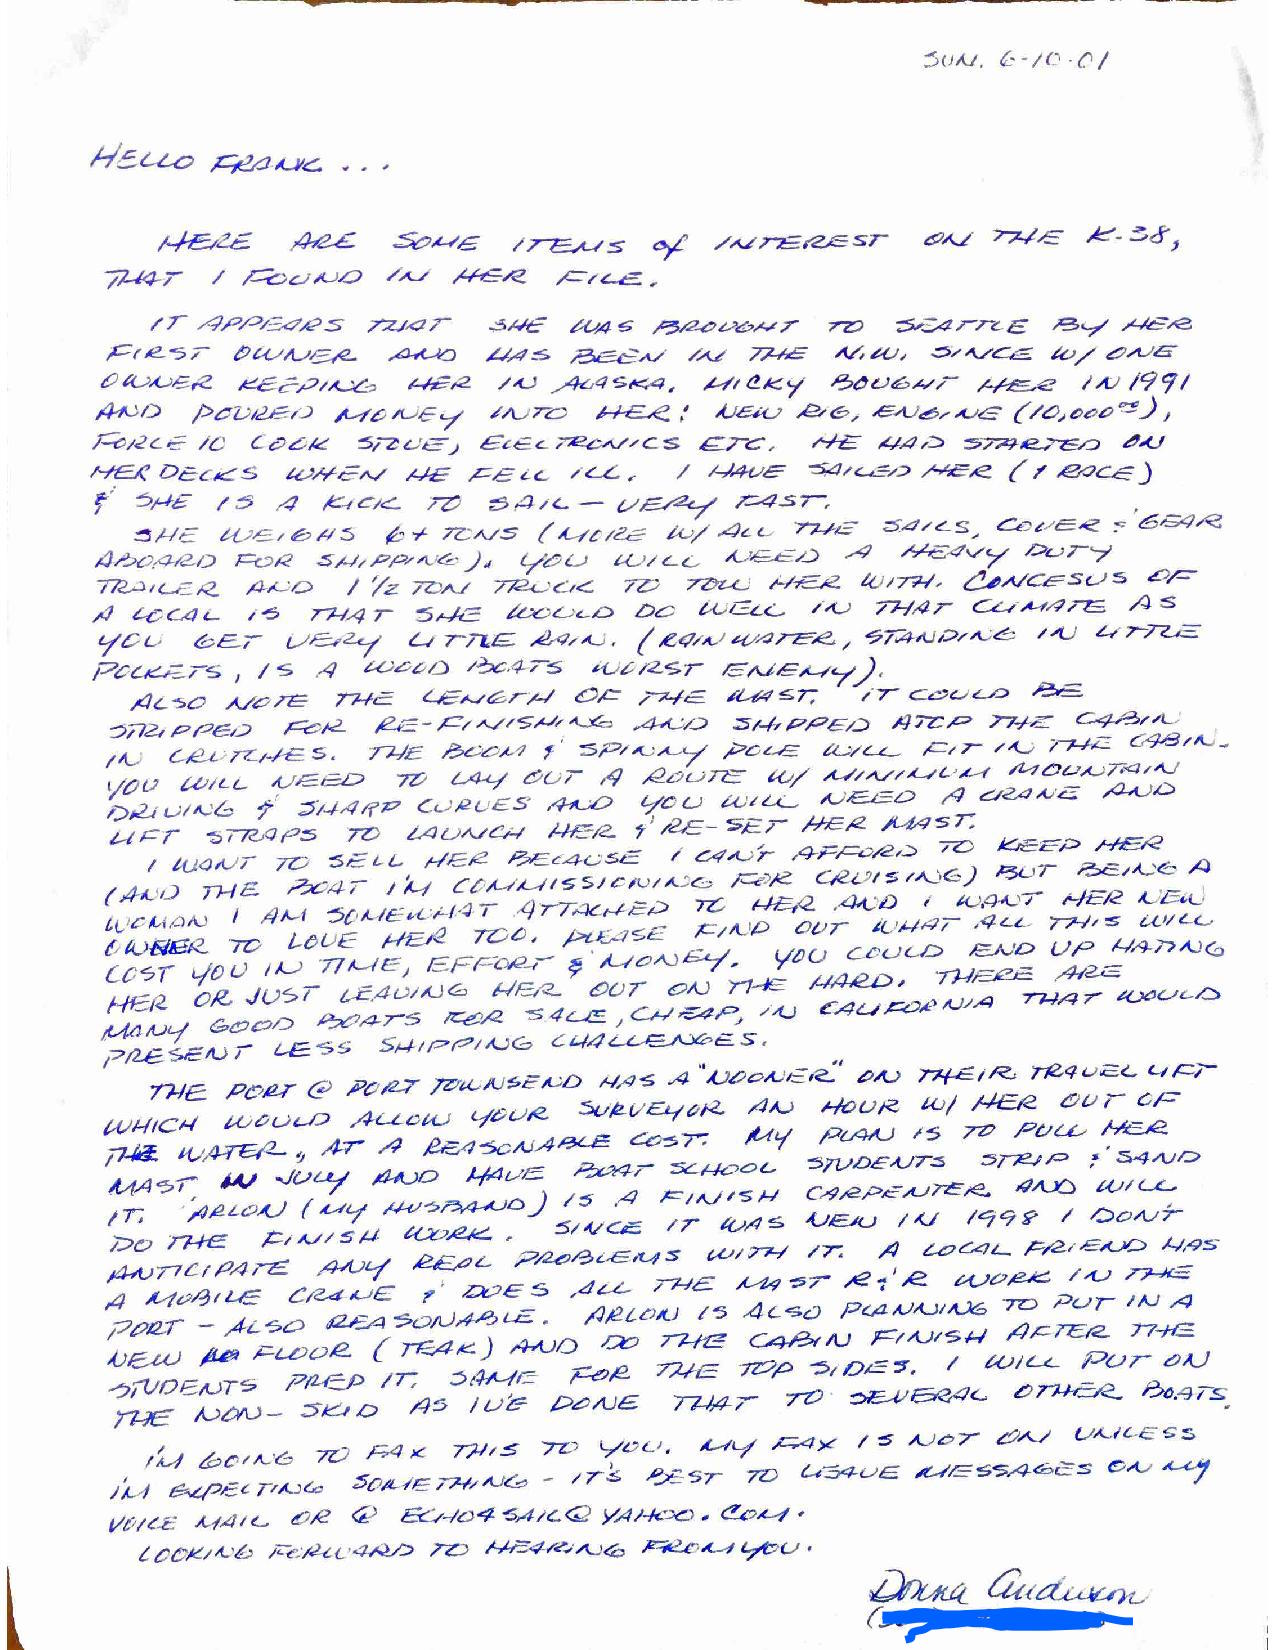 SUN. 6-10-01
HELLO FRANK...
HERE ARE SOME ITEMS of INTEREST ON THE K-38,
THAT I FOUND IN HER FILE.
IT APPEARS THAT SHE WAS BROUGHT TO SEATTLE BY HER
FIRST OWNER AND HAS BEEN IN THE N.W. SINCE W/ ONE
OWNER KEEPING HER IN ALASKA. MICKY BOUGHT HER IN 1991
AND POURED MONEY INTO HER! NEW RIG, ENGINE (10,000⁰⁰),
FORCE 10 COOK STOVE, ELECTRONICS ETC. HE HAD STARTED ON
HER DECKS WHEN HE FELL ILL. I HAVE SAILED HER (1 RACE)
& SHE IS A KICK TO SAIL - VERY FAST.
SHE WEIGHS 6+ TONS (MORE W/ ALL THE SAILS, COVER & GEAR
ABOARD FOR SHIPPING). YOU WILL NEED A HEAVY DUTY
TRAILER AND 1 1/2 TON TRUCK TO TOW HER WITH. CONCESUS OF
A LOCAL IS THAT SHE WOULD DO WELL IN THAT CLIMATE AS
YOU GET VERY LITTLE RAIN. (RAIN WATER, STANDING IN LITTLE
POCKETS, IS A WOOD BOATS WORST ENEMY).
ALSO NOTE THE LENGTH OF THE MAST. IT COULD BE
STRIPPED FOR RE-FINISHING AND SHIPPED ATOP THE CABIN
IN CRUTCHES. THE BOOM & SPINNY POLE WILL FIT IN THE CABIN.
YOU WILL NEED TO LAY OUT A ROUTE W/ MINIMUM MOUNTAIN
DRIVING & SHARP CURVES AND YOU WILL NEED A CRANE AND
LIFT STRAPS TO LAUNCH HER & RE-SET HER MAST.
I WANT TO SELL HER BECAUSE I CAN'T AFFORD TO KEEP HER
(AND THE BOAT I'M COMMISSIONING FOR CRUISING) BUT BEING A
WOMAN I AM SOMEWHAT ATTACHED TO HER AND I WANT HER NEW
OWNER TO LOVE HER TOO. PLEASE FIND OUT WHAT ALL THIS WILL
COST YOU IN TIME, EFFORT & MONEY. YOU COULD END UP HATING
HER OR JUST LEAVING HER OUT ON THE HARD. THERE ARE
MANY GOOD BOATS FOR SALE, CHEAP, IN CALIFORNIA THAT WOULD
PRESENT LESS SHIPPING CHALLENGES.
THE PORT @ PORT TOWNSEND HAS A "NOONER" ON THEIR TRAVEL LIFT
WHICH WOULD ALLOW YOUR SURVEYOR AN HOUR W/ HER OUT OF
THE WATER, AT A REASONABLE COST. MY PLAN IS TO PULL HER
MAST IN JULY AND HAVE BOAT SCHOOL STUDENTS STRIP & SAND
IT. ARLON (MY HUSBAND) IS A FINISH CARPENTER AND WILL
DO THE FINISH WORK. SINCE IT WAS NEW IN 1998 I DON'T
ANTICIPATE ANY REAL PROBLEMS WITH IT. A LOCAL FRIEND HAS
A MOBILE CRANE & DOES ALL THE MAST R&R WORK IN THE
PORT - ALSO REASONABLE. ARLON IS ALSO PLANNING TO PUT IN A
NEW FLOOR (TEAK) AND DO THE CABIN FINISH AFTER THE
STUDENTS PREP IT. SAME FOR THE TOP SIDES. I WILL PUT ON
THE NON-SKID AS I'VE DONE THAT TO SEVERAL OTHER BOATS.
I'M GOING TO FAX THIS TO YOU. MY FAX IS NOT ON UNLESS
I'M EXPECTING SOMETHING - IT'S BEST TO LEAVE MESSAGES ON MY
VOICE MAIL OR @ ECHO4SAIL@YAHOO.COM.
LOOKING FORWARD TO HEARING FROM YOU.
Donna Anderson